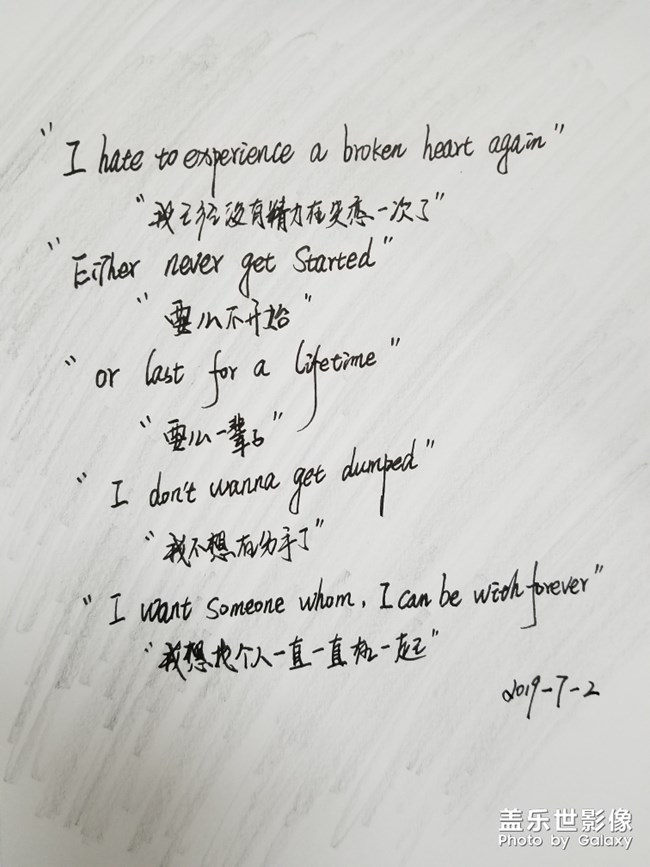 "I hate to experience a broken heart again"
"我已经没有精力在失恋一次了"
"Either never get Started"
"要么不开始"
"or last for a lifetime"
"要么一辈子"
"I don't wanna get dumped"
"我不想在分手了"
"I want someone whom, I can be with forever"
"我想找个人一直一直在一起"
2019-7-2
盖乐世影像
Photo by Galaxy